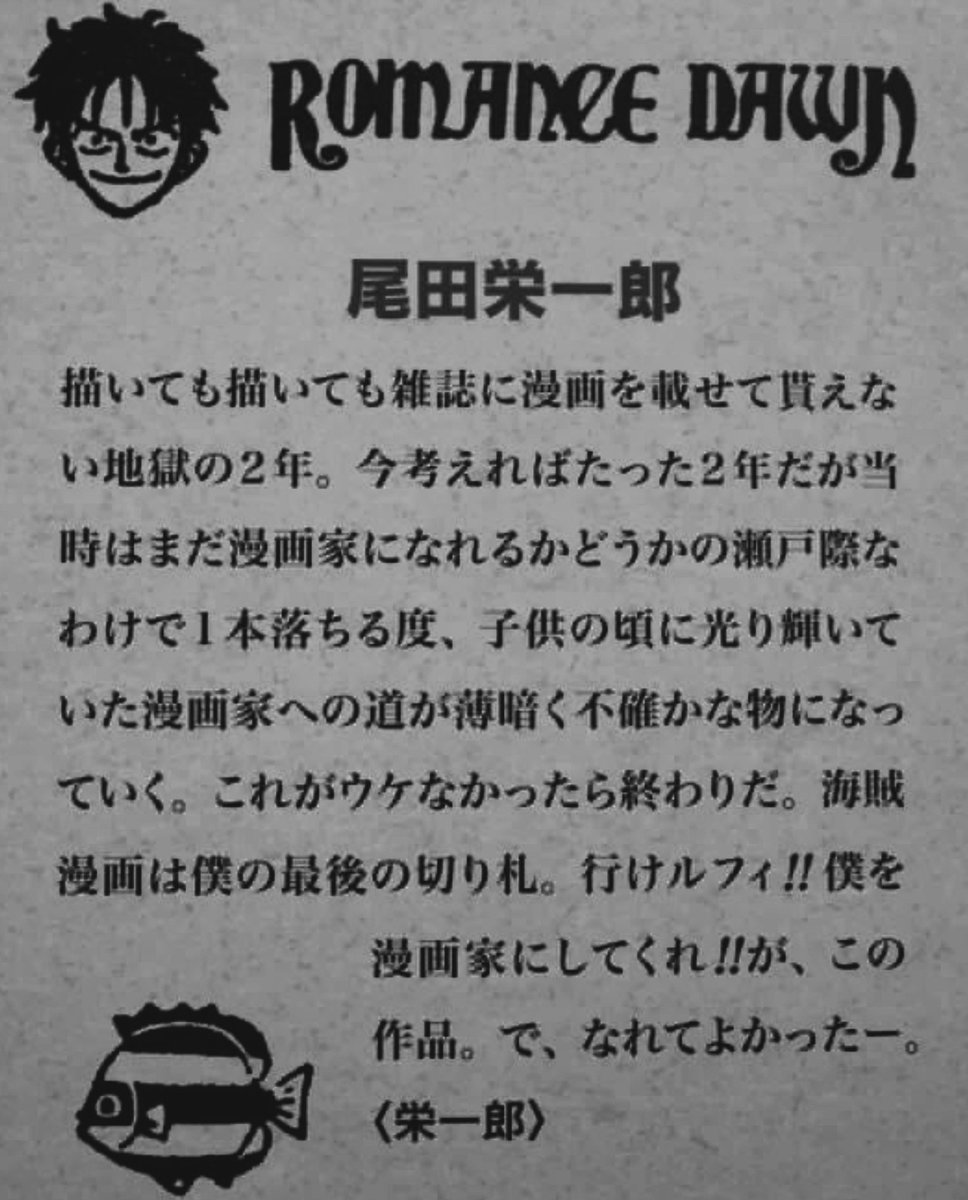 ROMANCE DAWN
尾田栄一郎
描いても描いても雑誌に漫画を載せて貰えな
い地獄の2年。今考えればたった2年だが当
時はまだ漫画家になれるかどうかの瀬戸際な
わけで1本落ちる度、子供の頃に光り輝いて
いた漫画家への道が薄暗く不確かな物になっ
ていく。これがウケなかったら終わりだ。海賊
漫画は僕の最後の切り札。行けルフィ!!僕を
漫画家にしてくれ!!が、この
作品。で、なれてよかったー。
〈栄一郎〉